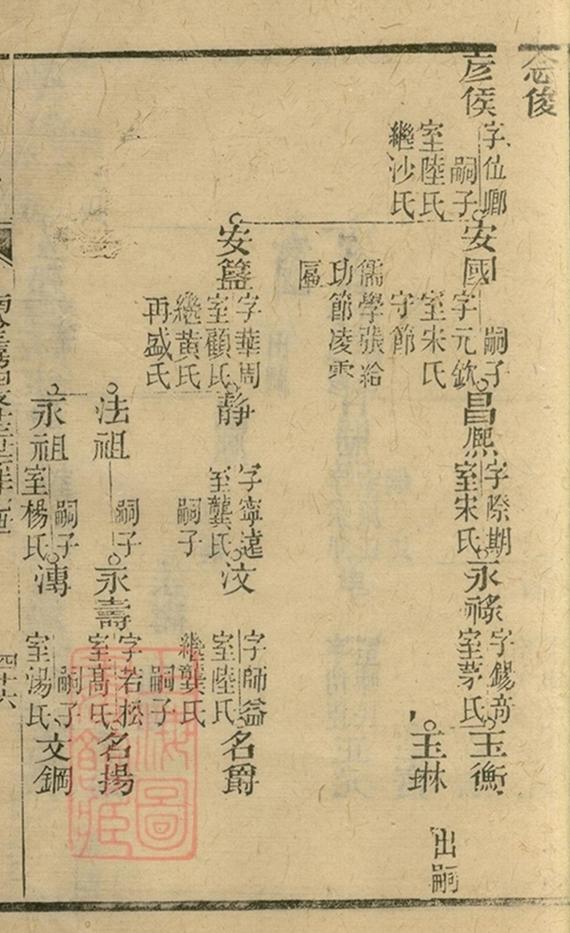 念俊
彦侯
字位卿
嗣子
室陸氏
繼沙氏
安國
字元欽
嗣子
室宋氏
守節
儒學張給
功節凌雲
匾
昌熈
字際期
室宋氏
永祿
字錫奇
室茅氏
玉衡
玉琳
出嗣
安簋
字華周
室顧氏
繼黄氏
再盛氏
静
字寧遠
室龔氏
嗣子
汶
字師益
室陸氏
繼龔氏
嗣子
名爵
法祖
嗣子
永壽
字若松
室髙氏
名揚
永祖
嗣子
室楊氏
漙
嗣子
室湯氏
文鋼
四十六